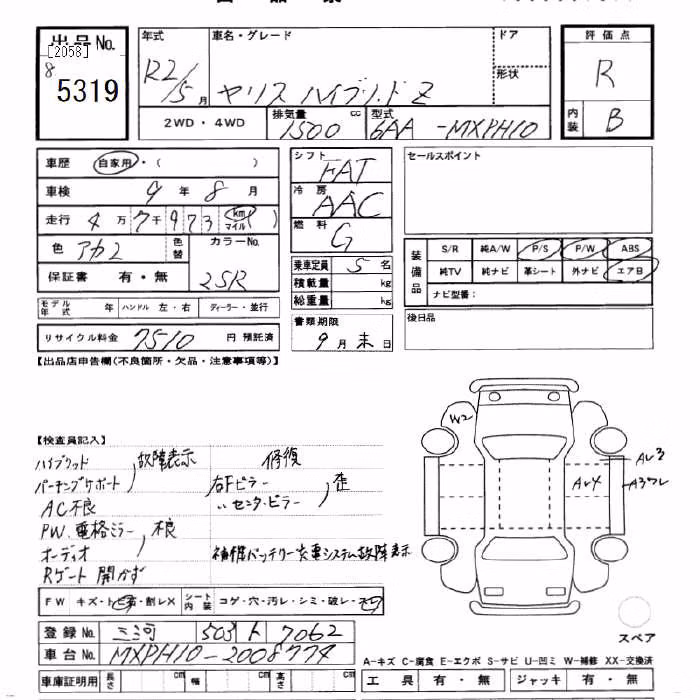 出品No.
[2058]
8
5319
年式
R2/5月
車名・グレード
ヤリスハイブリッドZ
ドア
形状
評価点
R
内装
B
2WD・4WD
排気量
1500 cc
型式
6AA-MXPH10
車歴
自家用・( )
車検
9年8月
走行
4万7千973
km
マイル
( )
色
アカ2
色替
カラーNo.
2SR
保証書 有・無
モデル年式 年
ハンドル 左・右
ディーラー・並行
リサイクル料金 7510 円 預託済
シフト
FAT
冷房
AAC
燃料
G
乗車定員 5 名
積載量 kg
総重量 kg
書類期限
9月末日
セールスポイント
装備品
S/R 純A/W P/S P/W ABS
純TV 純ナビ 革シート 外ナビ エアB
ナビ型番:
後日品
【出品店申告欄(不良箇所・欠品・注意事項等)】
【検査員記入】
ハイブリッド
パーキングサポート
故障表示
AC不良
PW.電格ミラー
オーディオ
不良
Rゲート 開かず
修復
右Fピラー
〃センターピラー
歪
補機バッテリー充電システム故障表示
W2
Aレ3
Aレ4
A3ワレ
FW キズ・ヒ・割レX
シート内装
コゲ・穴・汚レ・シミ・破レ・
登録No. 三河 503 ト 7062
車台No. MXPH10-2008774
車庫証明用 長さ cm 幅 cm 高さ cm
スペア
A-キズ C-腐食 E-エクボ S-サビ U-凹ミ W-補修 XX-交換済
工具 有・無 ジャッキ 有・無